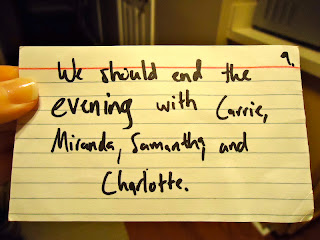 9.
We should end the
evening with Carrie,
Miranda, Samantha, and
Charlotte.